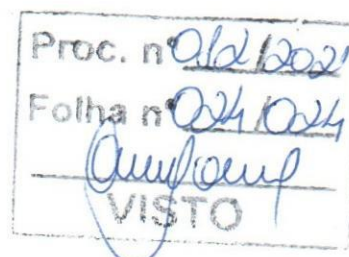 Proc. nº 012/2021
Folha nº 024/024
VISTO